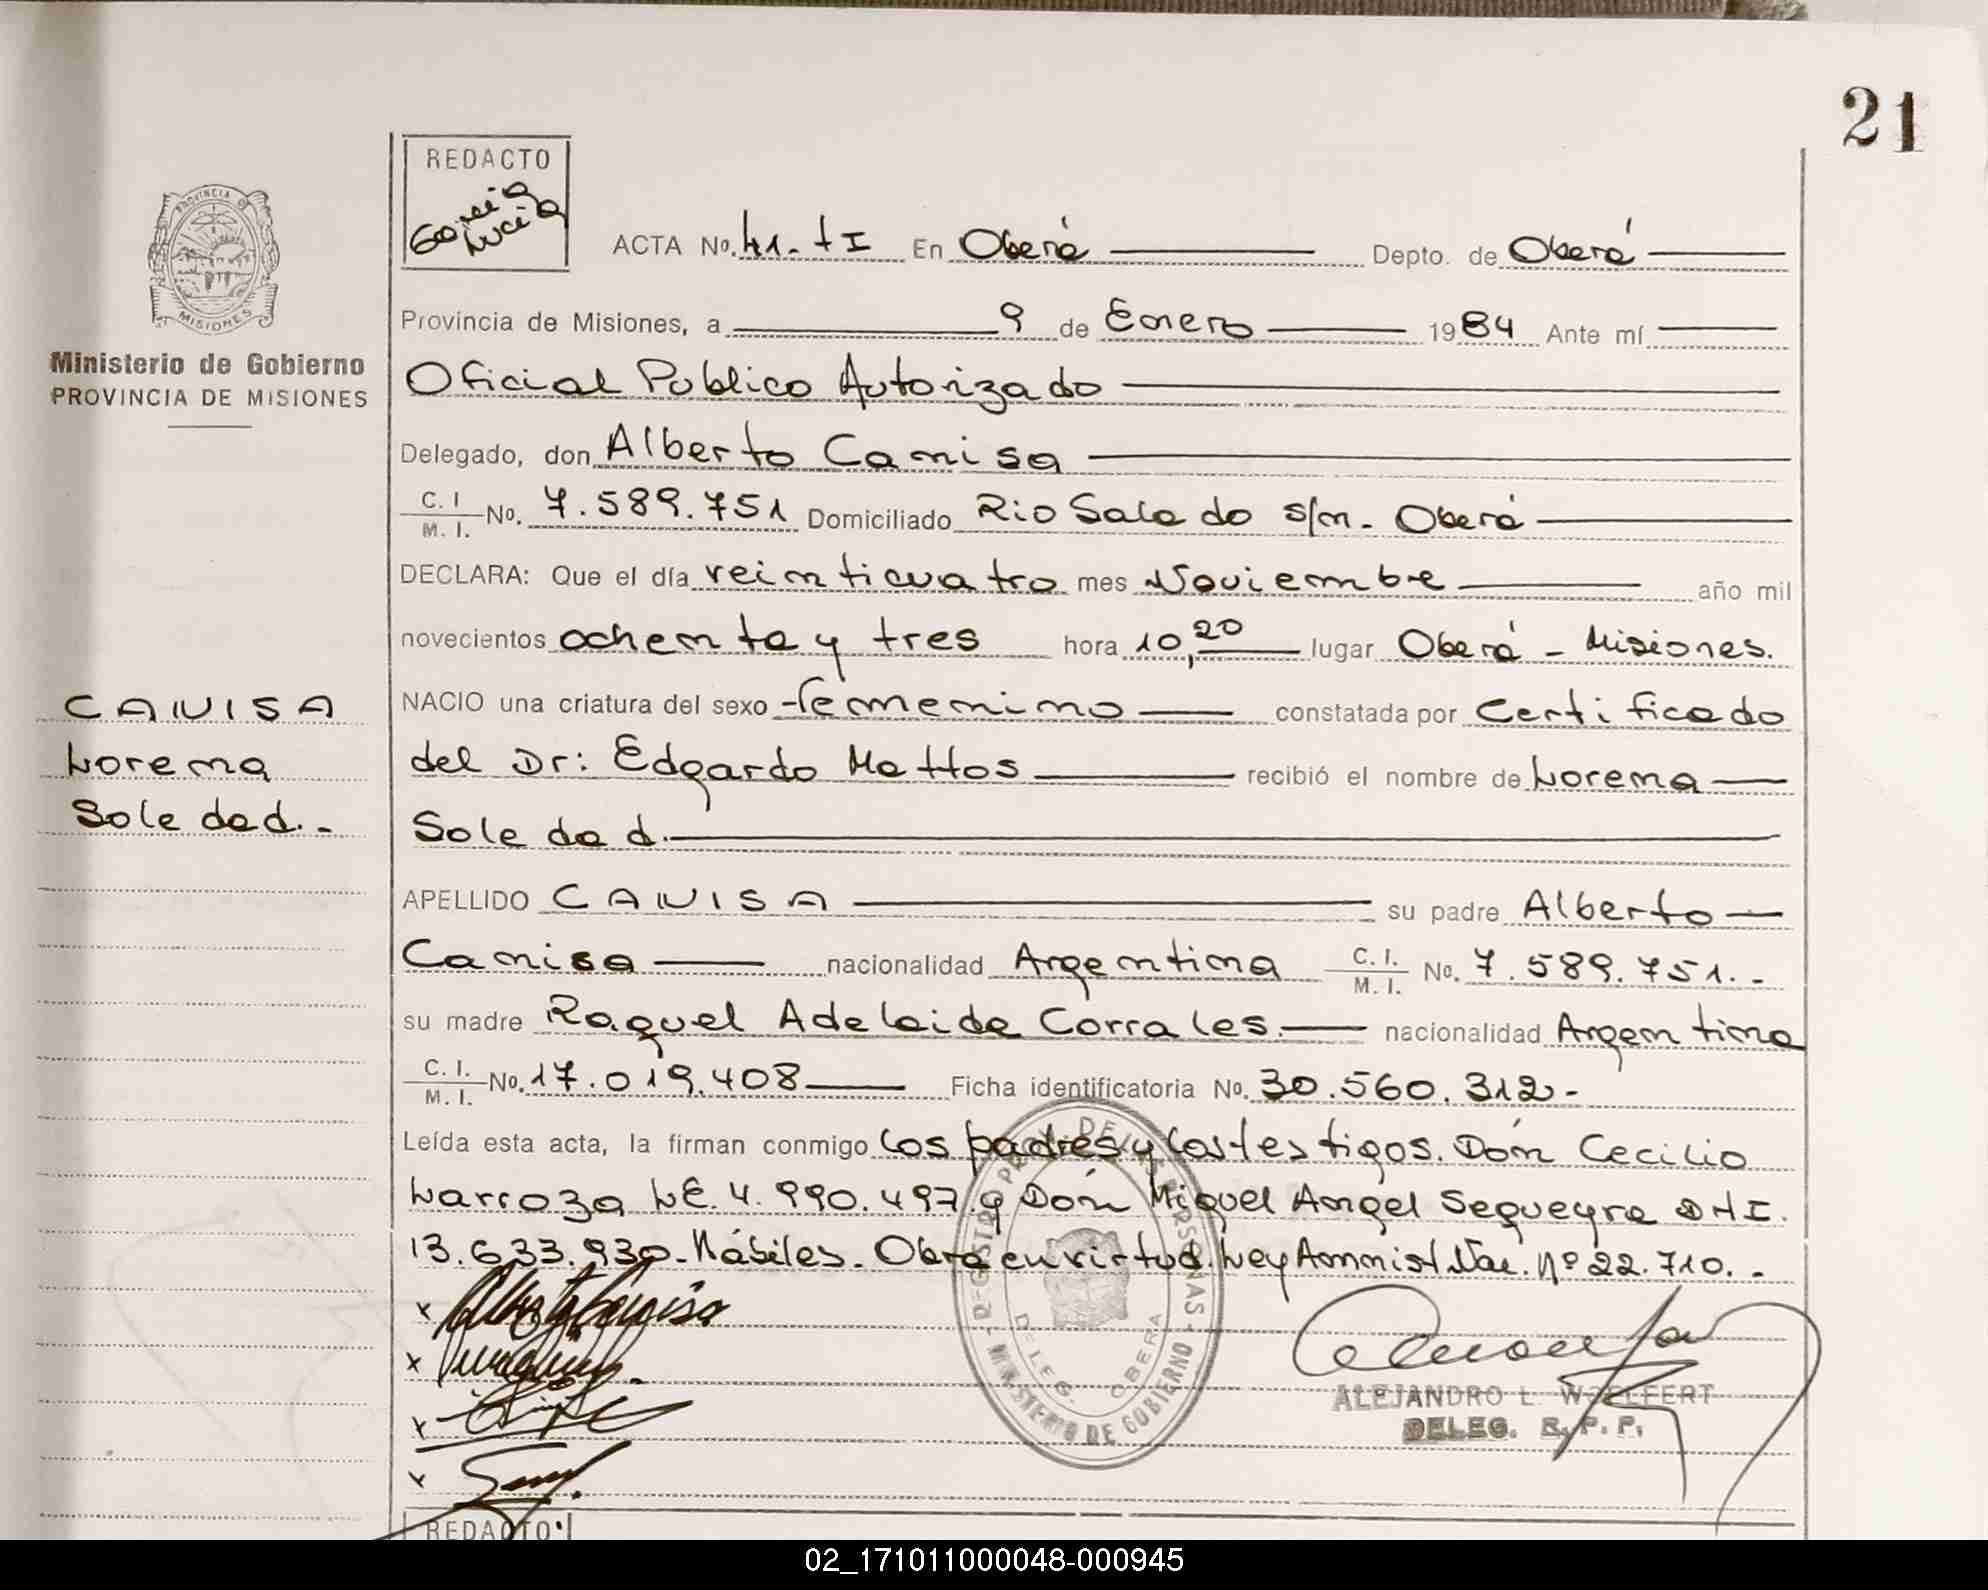 21
REDACTO
García
Lucía
ACTA No. 41-tI En Oberá Depto. de Oberá
Provincia de Misiones, a 9 de Enero 1984 Ante mí
Oficial Publico Autorizado
Delegado, don Alberto Canisa
C. I. / M. I. No. 7.589.751 Domiciliado Rio Salado s/n. Oberá
DECLARA: Que el día veinticuatro mes Noviembre año mil
novecientos ochenta y tres hora 10,20 lugar Oberá - Misiones.
NACIO una criatura del sexo femenino constatada por Certificado
del Dr: Edgardo Mattos recibió el nombre de Lorena
Soledad.
APELLIDO CANISA su padre Alberto
Canisa nacionalidad Argentina C. I. / M. I. No. 7.589.751.-
su madre Raquel Adelaida Corrales. nacionalidad Argentina
C. I. / M. I. No. 17.019.408 Ficha identificatoria No. 30.560.312-
Leída esta acta, la firman conmigo los padres y los testigos. Dón Cecilio
Larroza LE. 4.990.497. y Dón Miguel Angel Segueyra DNI.
13.633.930- Hábiles. Obra en virtud. Ley Amnist. Nac. Nº 22.710.-
PROVINCIA DE MISIONES
Ministerio de Gobierno
PROVINCIA DE MISIONES
CANISA
Lorena
Soledad.-
MINISTERIO DE GOBIERNO
DELEG. OBERA
ALEJANDRO L. WOELFERT
DELEG. R. P. P.
REDACTO:
02_171011000048-000945